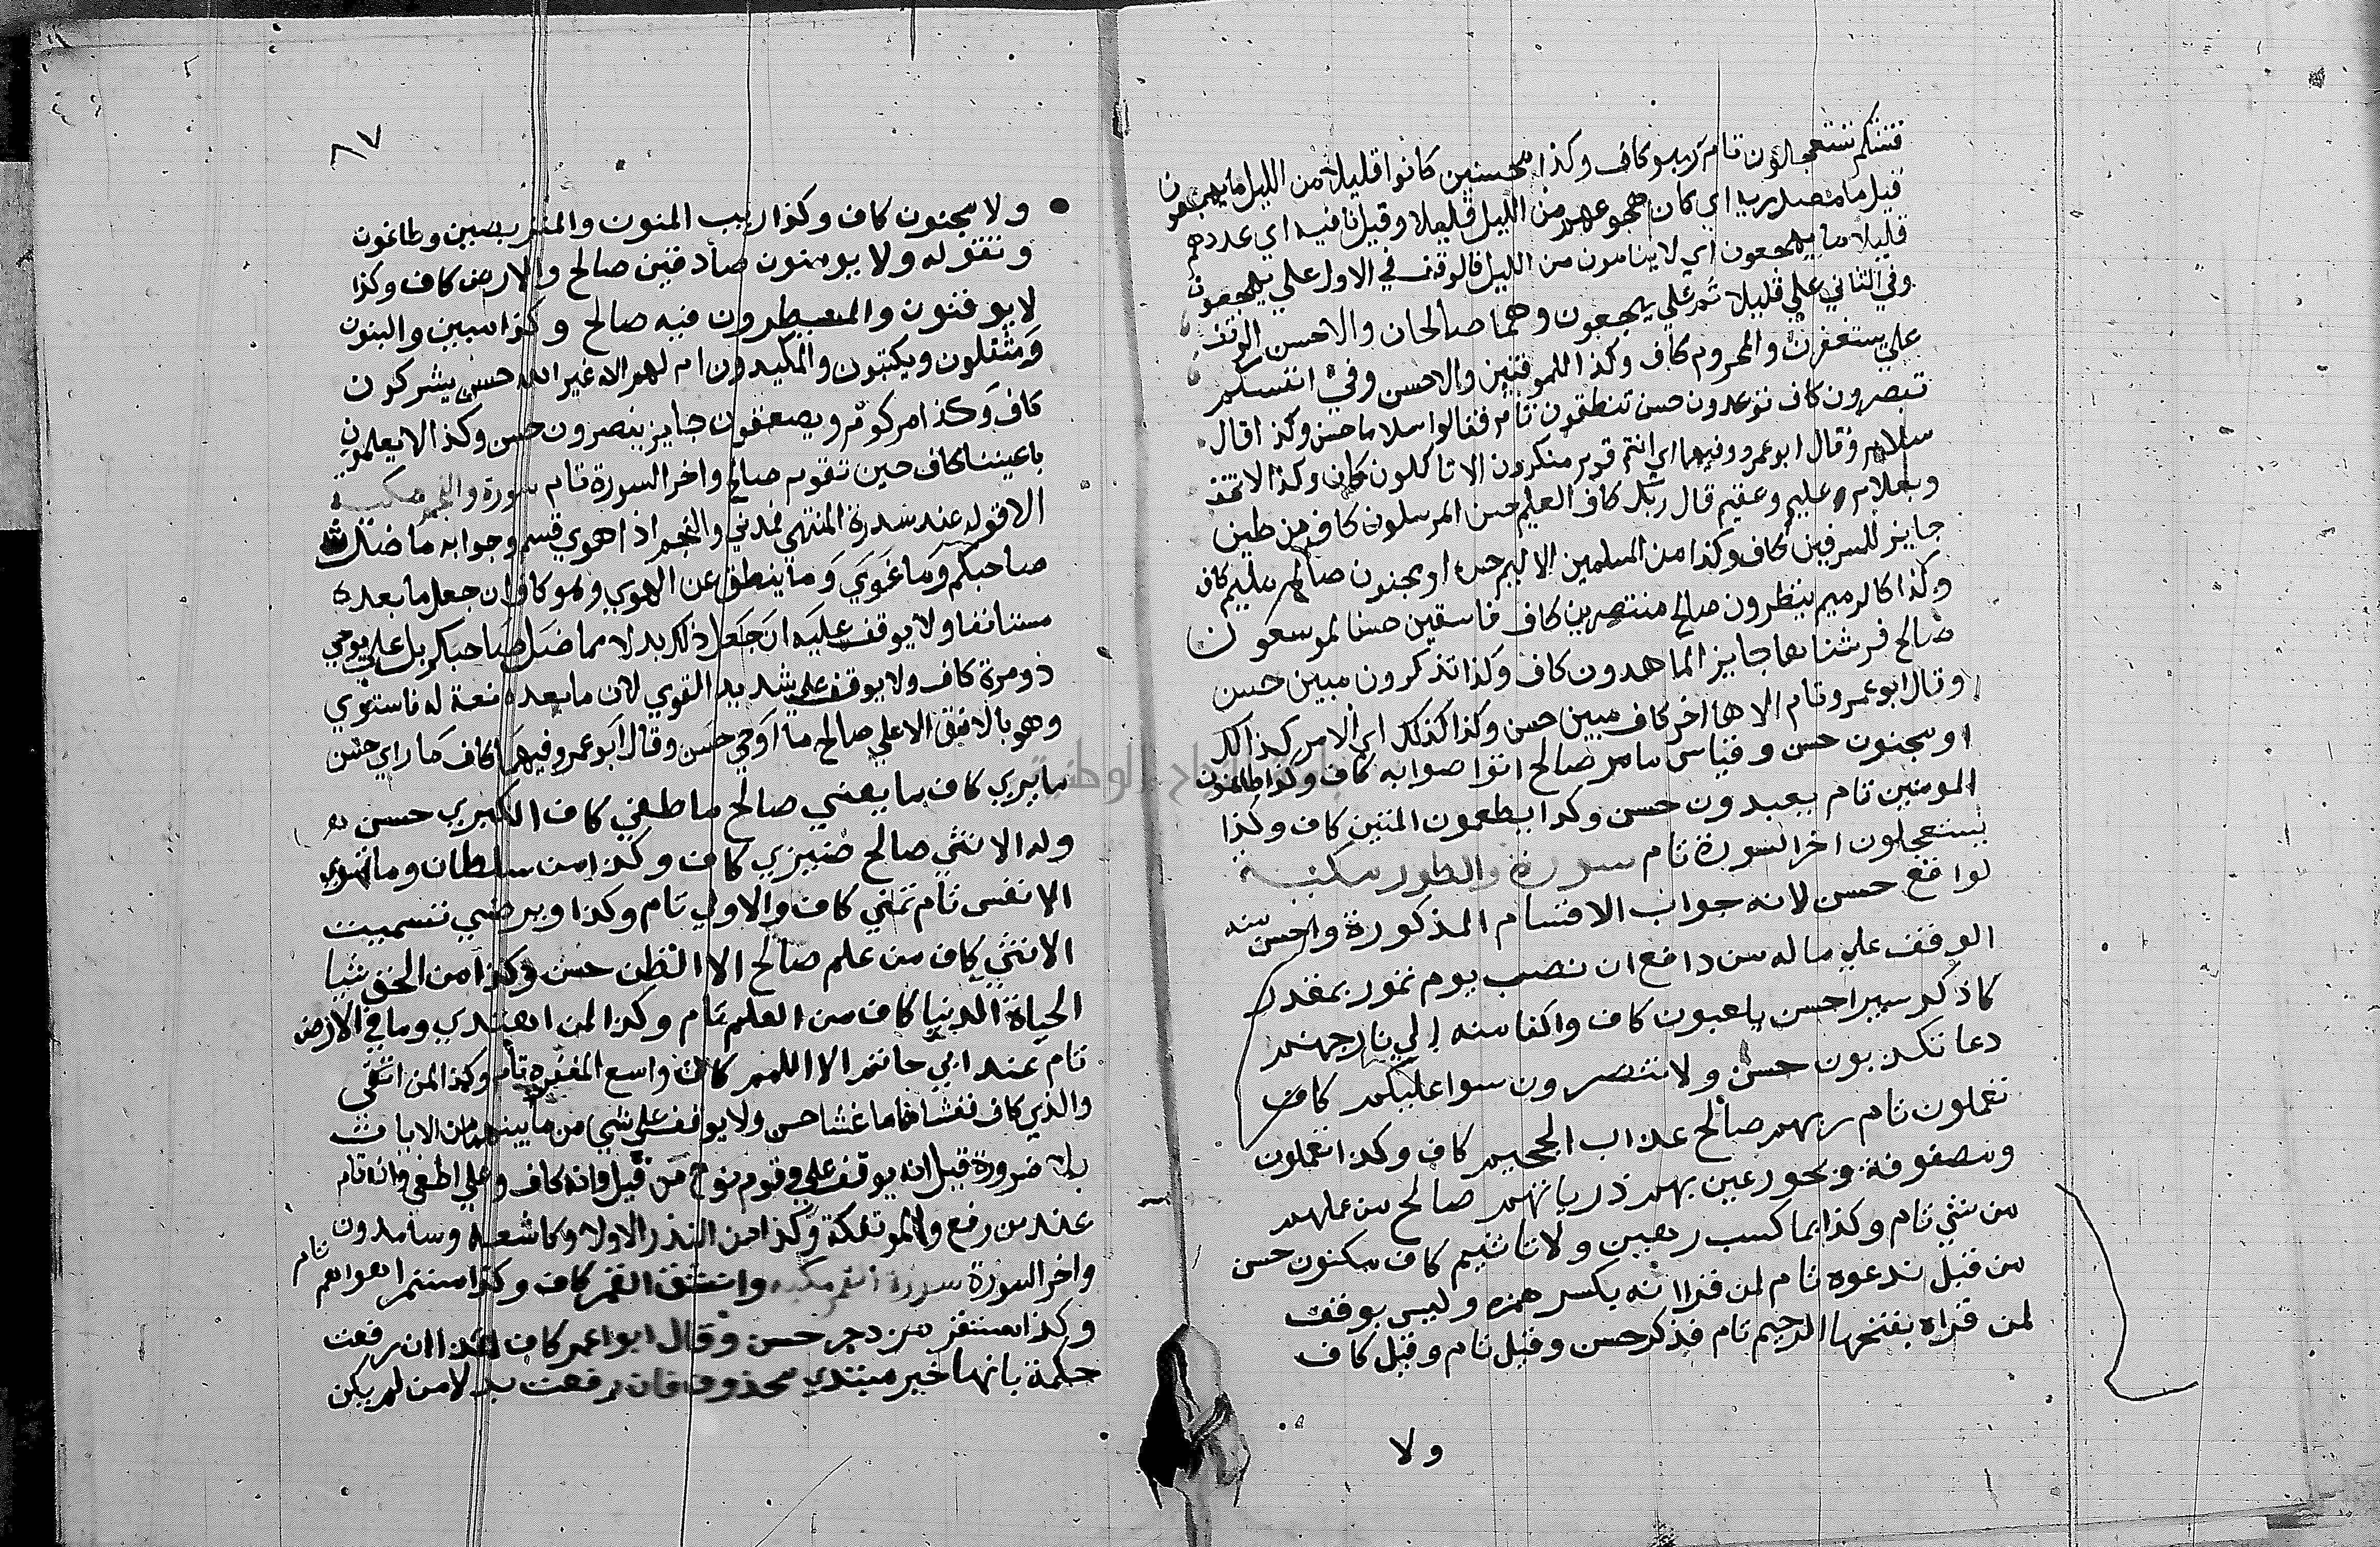 فتنتكم تستعجلون تام وعيون كاف وكذا محسنين كانوا قليلا من الليل ما يهجعون
قيل ما مصدرية اي كان هجوعهم من الليل قليلا وقيل نافيه اي عددهم
قليلا ما يهجعون اي لا ينامون من الليل فالوقف في الاول علي يهجعون
وفي الثاني علي قليلا ثم علي يهجعون وهما صالحان والاحسن الوقف
علي يستغفرون والمحروم كاف وكذا للموقنين والاحسن وفي انفسكم
تبصرون كاف توعدون حسن تنطقون تام فقالوا سلاما حسن وكذا قال
سلام وقال ابو عمرو فيهما اي انتم قوم منكرون الا تاكلون كاف وكذا لا تخف
وبغلام عليم وعقيم قال ربك كاف العليم حسن المرسلون كاف من طين
جايز للمسرفين كاف وكذا من المسلمين الاليم حسن او مجنون صالح مليم كاف
وكذا كالرميم ينظرون صالح منتصرين كاف فاسقين حسن لموسعون
صالح فرشناها جايز الماهدون كاف وكذا تذكرون مبين حسن
وقال ابو عمرو تام الاها اخر كاف مبين حسن وكذا كذلك اي الامر كذالك
او مجنون حسن وقياس ما مر صالح اتواصوا به كاف وكذا طاغون
المومنين تام يعبدون حسن وكذا يطعمون المتين كاف وكذا
يستعجلون اخر السورة تام سورة والطور مكية
لواقع حسن لانه جواب الاقسام المذكورة واحسن منه
الوقف علي ما له من دافع ان نصب يوم تمور بمقدر
كاذكر سيرا حسن يلعبون كاف واكفا منه الي نار جهنم
دعا تكذبون حسن ولا تبصرون سوا عليكم كاف
تعملون تام ربهم صالح عذاب الجحيم كاف وكذا تعملون
ومصفوفة وبحور عين بهم ذرياتهم صالح من عملهم
من شي تام وكذا بما كسب رهين ولا تاثيم كاف مكنون حسن
من قبل ندعوه تام لمن قرا انه بكسر همزه وليس بوقف
لمن قراه بفتحها الرحيم تام فذكر حسن وقيل تام وقيل كاف
ولا
٨٧
ولا مجنون كاف وكذا ريب المنون والمتربصين وطاغون
وتقوله ولا يومنون صادقين صالح والارض كاف وكذا
لا يوقنون والمصيطرون فيه صالح وكذا مبين والبنون
ومثقلون ويكتبون والمكيدون ام لهم اله غير الله حسن يشركون
كاف وكذا مركوم ويصعقون جايز ينصرون حسن وكذا لا يعلمون
باعيننا كاف حين تقوم صالح واخر السورة تام سورة والنجم مكية
الا قوله عند سدرة المنتهي فمدني والنجم اذا هوي قسم وجوابه ما ضل
صاحبكم وما غوي وما ينطق عن الهوي وهو كاف ان جعل ما بعده
مستانفا ولا يوقف عليه ان جعل ذلك بدلا مما ضل صاحبكم بل علي يوحي
ذو مرة كاف ولا يوقف علي شديد القوي لان ما بعده نعة له فاستوي
وهو بالافق الاعلي صالح ما اوحي حسن وقال ابو عمرو فيهما كاف ما راي حسن
ما يري كاف ما يغشي صالح ما طغي كاف الكبري حسن
وله الانثي صالح ضيزي كاف وكذا من سلطان وما تهوي
الانفس تام تمني كاف والاولي تام وكذا ويرضي تسمية
الانثي كاف من علم صالح الا الظن حسن وكذا من الحق شيا
الحياة الدنيا كاف من العلم تام وكذا لمن اهتدي وما في الارض
تام عند ابي حاتم الا اللمم كاف واسع المغفرة تام وكذا لمن اتقي
والذي كاف فغشاها ما غشا حسن ولا يوقف علي شي من ما بينهما من الايات
بلا ضرورة قيل انه يوقف علي وقوم نوح من قبل وانه كاف وعلي اطغي وانه تام
عند من رفع والموتفكة وكذا من النذر الاولا وكاشفه وسامدون
واخر السورة تام سورة القمر مكيه وانشق القمر كاف وكذا مستمر اهواهم
وكذا مستقر مزدجر حسن وقال ابو اعمر كاف هذا ان رفعت
حكمة بانها خبر مبتدي محذوف فان رفعت بدلا من لم يكن